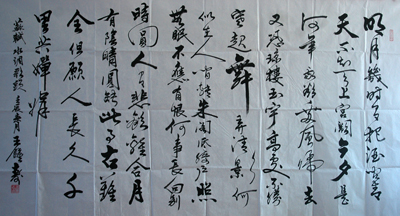 明月幾時有把酒問青
天不知天上宮闕今夕是
何年我欲乘風歸去
又恐瓊樓玉宇高處不勝
寒起舞弄清影何
似在人間轉朱閣低綺戶照
無眠不應有恨何事長向別
時圓人有悲歡離合月
有陰晴圓缺此事古難
全但願人長久千
里共嬋娟
蘇軾水調歌頭